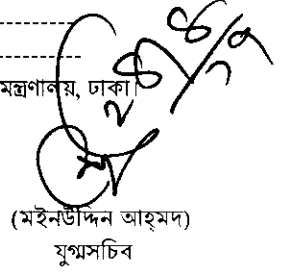 মন্ত্রণালয়, ঢাকা।
(মইনউদ্দিন আহ্‌মদ)
যুগ্মসচিব